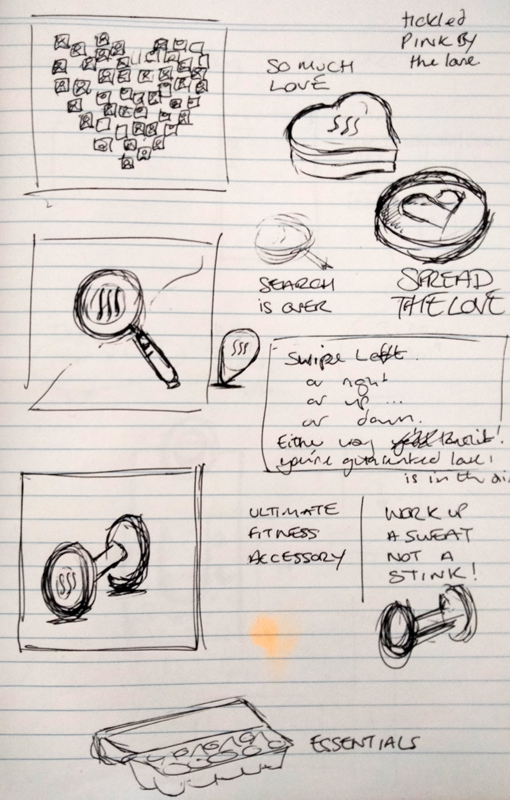 tickled
PINK BY
the lane
SO MUCH
LOVE
SEARCH
IS OVER
SPREAD
THE LOVE
Swipe Left.
or right
or up ...
or down.
Either way
you're guaranteed love!
is in the air
ULTIMATE
FITNESS
ACCESSORY
WORK UP
A SWEAT
NOT A
STINK!
ESSENTIALS